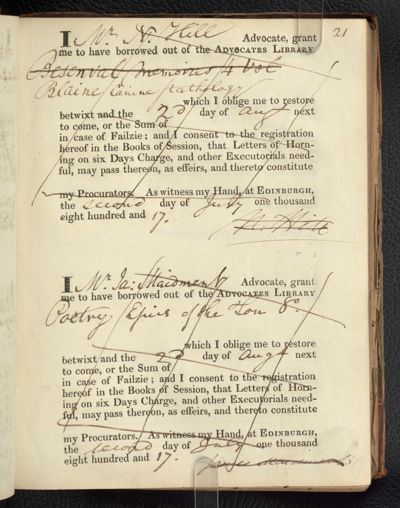 21
I Mr. N. Hill Advocate, grant
me to have borrowed out of the ADVOCATES LIBRARY
Besenval Memoires 4 Vol
Blaine Canine Pathology
which I oblige me to restore
betwixt and the 2d day of Augt next
to come, or the Sum of
in case of Failzie; and I consent to the registration
hereof in the Books of Session, that Letters of Horn-
ing on six Days Charge, and other Executorials need-
ful, may pass thereon, as effeirs, and thereto constitute
my Procurators. As witness my Hand, at EDINBURGH,
the second day of July one thousand
eight hundred and 17.
N. Hill
I Mr. Ja: Maidment Advocate, grant
me to have borrowed out of the ADVOCATES LIBRARY
Poetry of the 8o.
which I oblige me to restore
betwixt and the 2d day of Augt next
to come, or the Sum of
in case of Failzie; and I consent to the registration
hereof in the Books of Session, that Letters of Horn-
ing on six Days Charge, and other Executorials need-
ful, may pass thereon, as effeirs, and thereto constitute
my Procurators. As witness my Hand, at EDINBURGH,
the second day of July one thousand
eight hundred and 17.
James Maidment